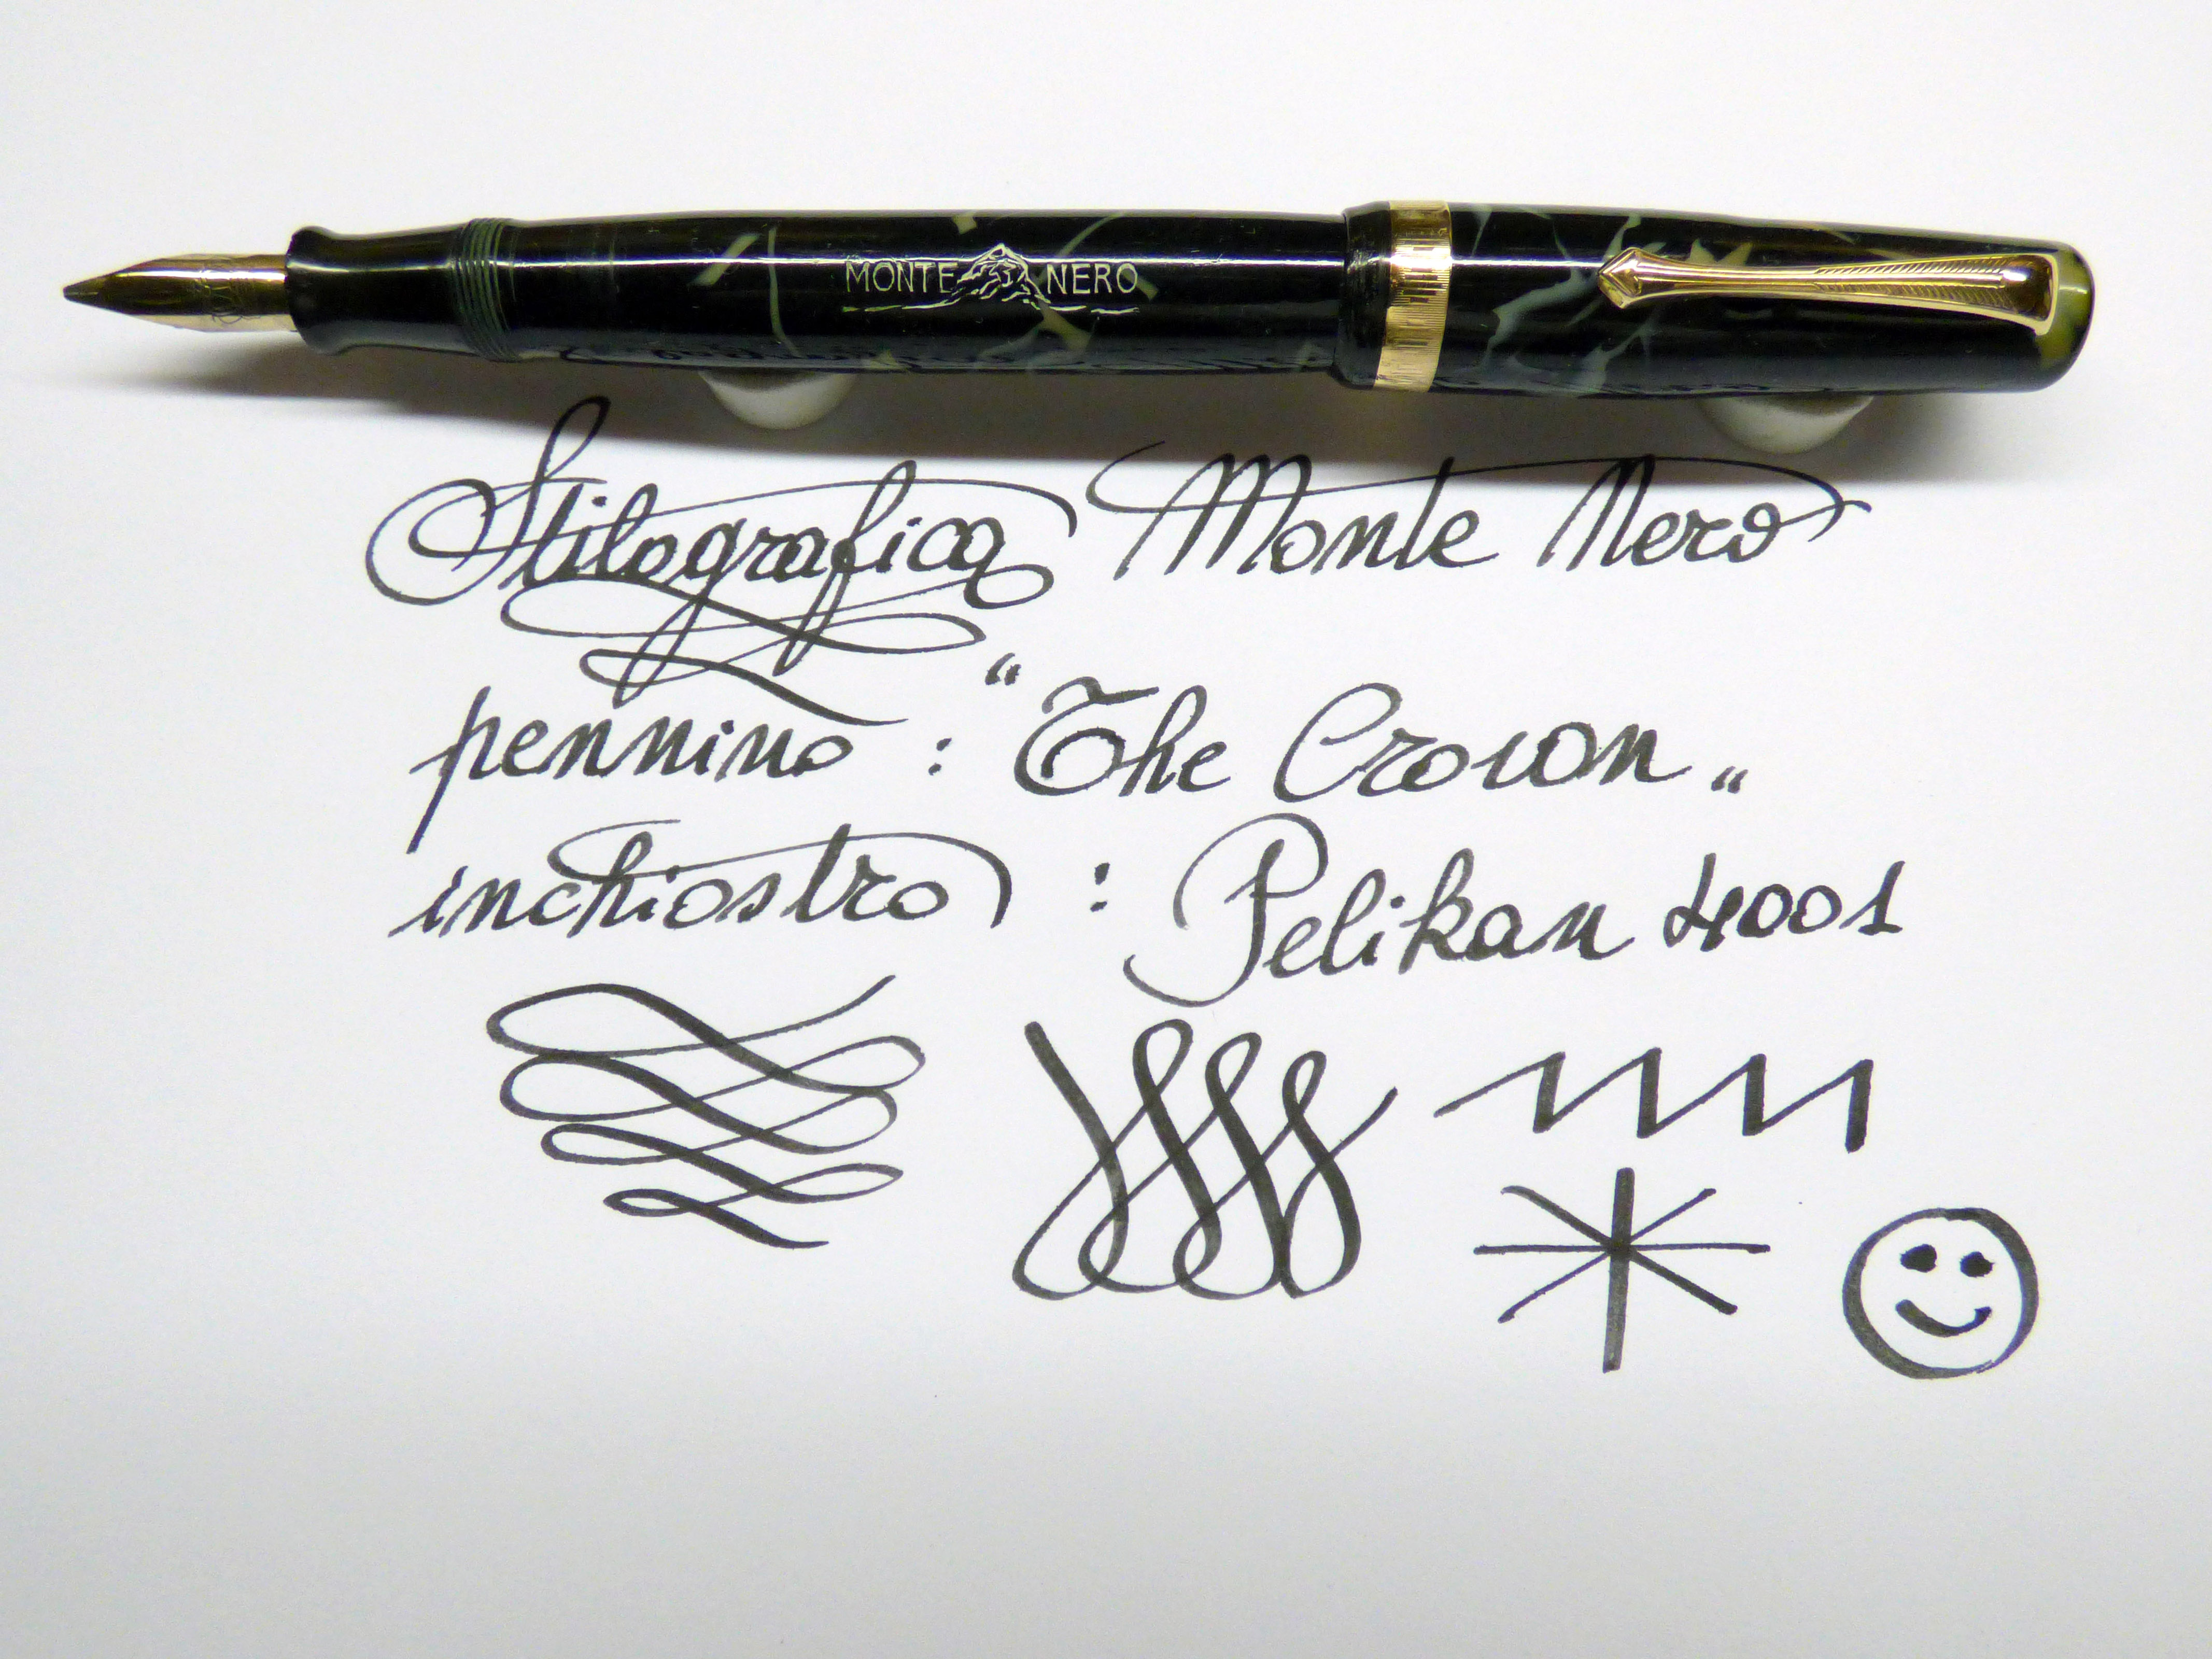 MONTE NERO
Stilografica Monte Nero
pennino : “The Crown„
inchiostro : Pelikan 4001